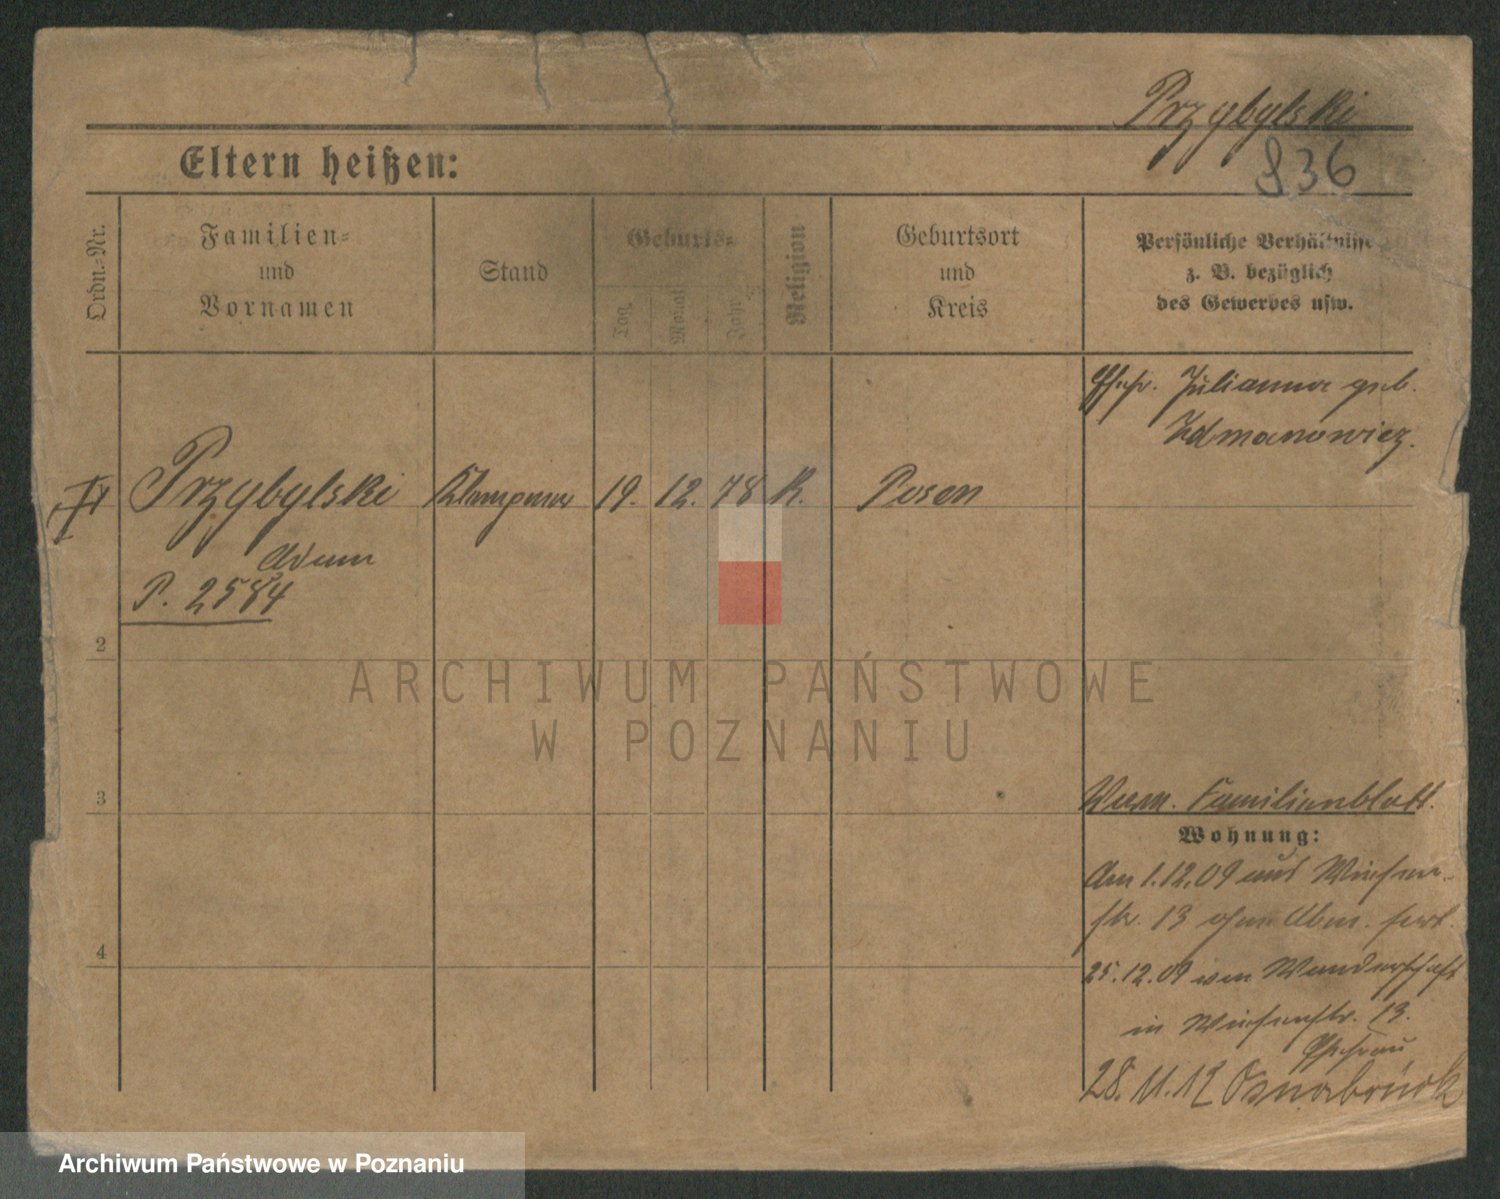 Przybylski
836
Eltern heißen:
Ordn.-Nr.
Familien-
und
Vornamen
Stand
Geburts-
Tag
Monat
Jahr
Religion
Geburtsort
und
Kreis
Persönliche Verhältnisse
z. B. bezüglich
des Gewerbes usw.
Ehefr. Julianna geb.
Zdmanowicz.
Przybylski Klempner 19. 12. 78 K. Posen
Adam
P. 2584
2
3
4
Verm. Familienblatt.
Wohnung:
Am 1.12.09 aus Wiesen-
str. 13 ohne Abm. fort.
25.12.09 von Wanderschaft
in Wiesenstr. 13.
Ehefrau
28.11.12 Osnabrück
ARCHIWUM PAŃSTWOWE
W POZNANIU
Archiwum Państwowe w Poznaniu